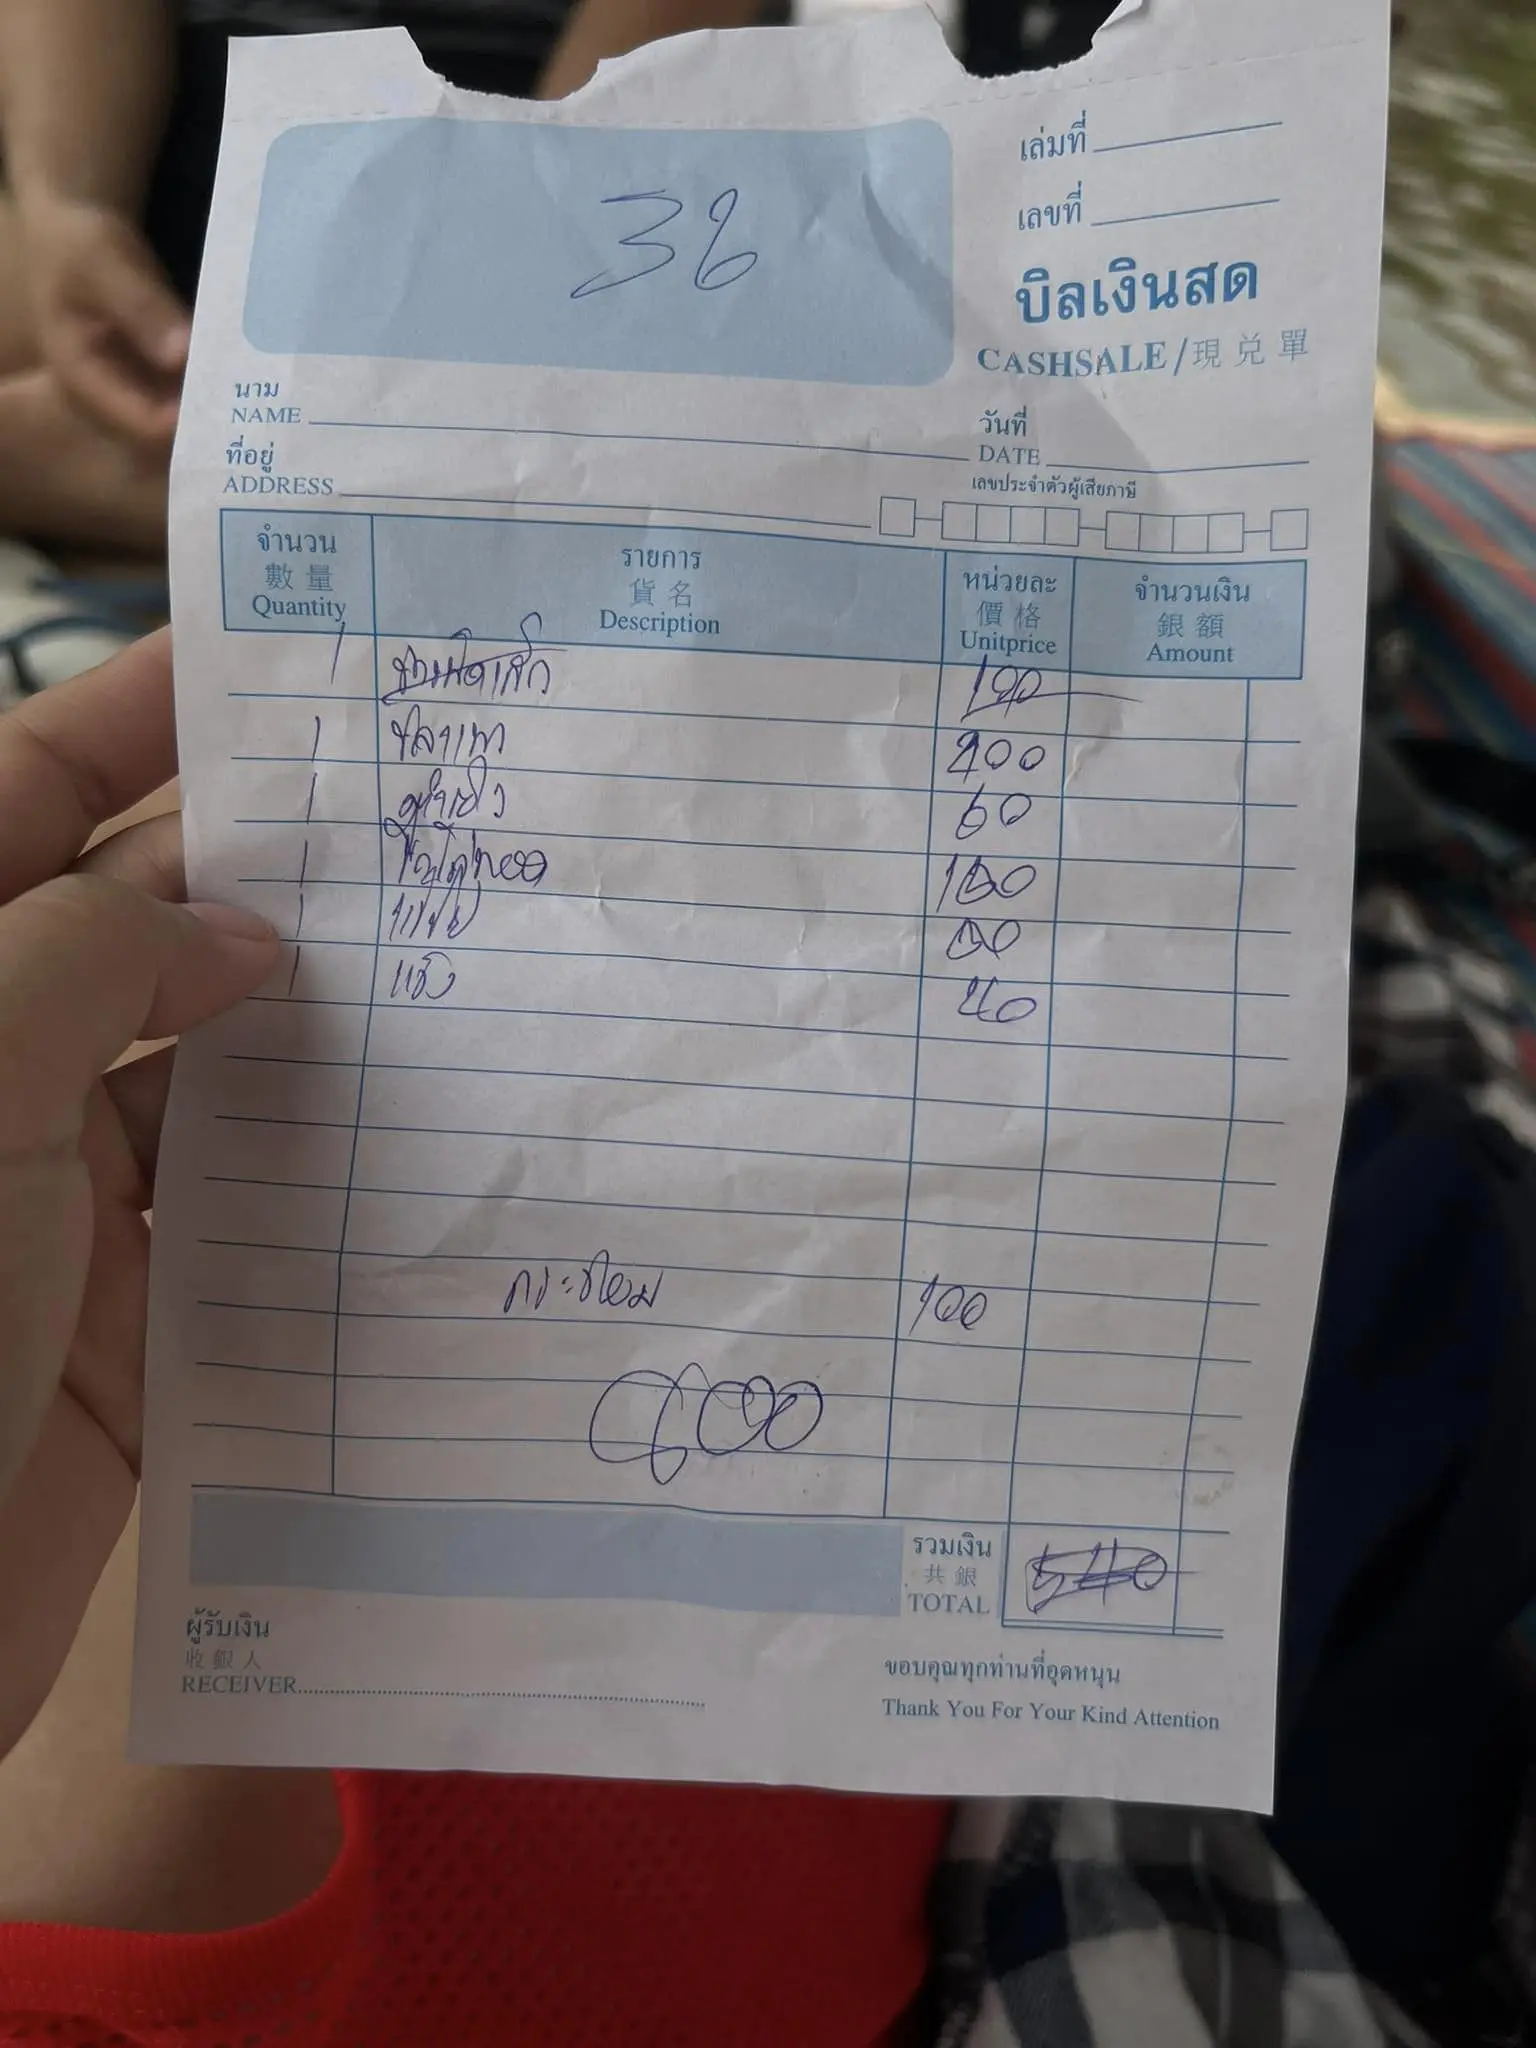 36
เล่มที่
เลขที่
บิลเงินสด
CASHSALE/現兑單
นาม
NAME
วันที่
DATE
ที่อยู่
ADDRESS
เลขประจำตัวผู้เสียภาษี
จำนวน รายการ หน่วยละ จำนวนเงิน
數量 貨名 價格 銀額
Quantity Description Unitprice Amount
1 100
1 ปลาเผา 200
1 60
1 ไข่ทอด 100
1
1 แข็ง 40
กระท่อม 100
600
รวมเงิน
共銀
TOTAL 540
ผู้รับเงิน
收銀人
RECEIVER
ขอบคุณทุกท่านที่อุดหนุน
Thank You For Your Kind Attention